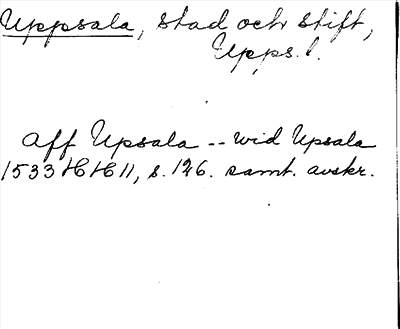 Uppsala, stad och stift,
Upps. l.
aff Upsala -- wid Upsala
1533 HH 11, s. 126. samt. avskr.